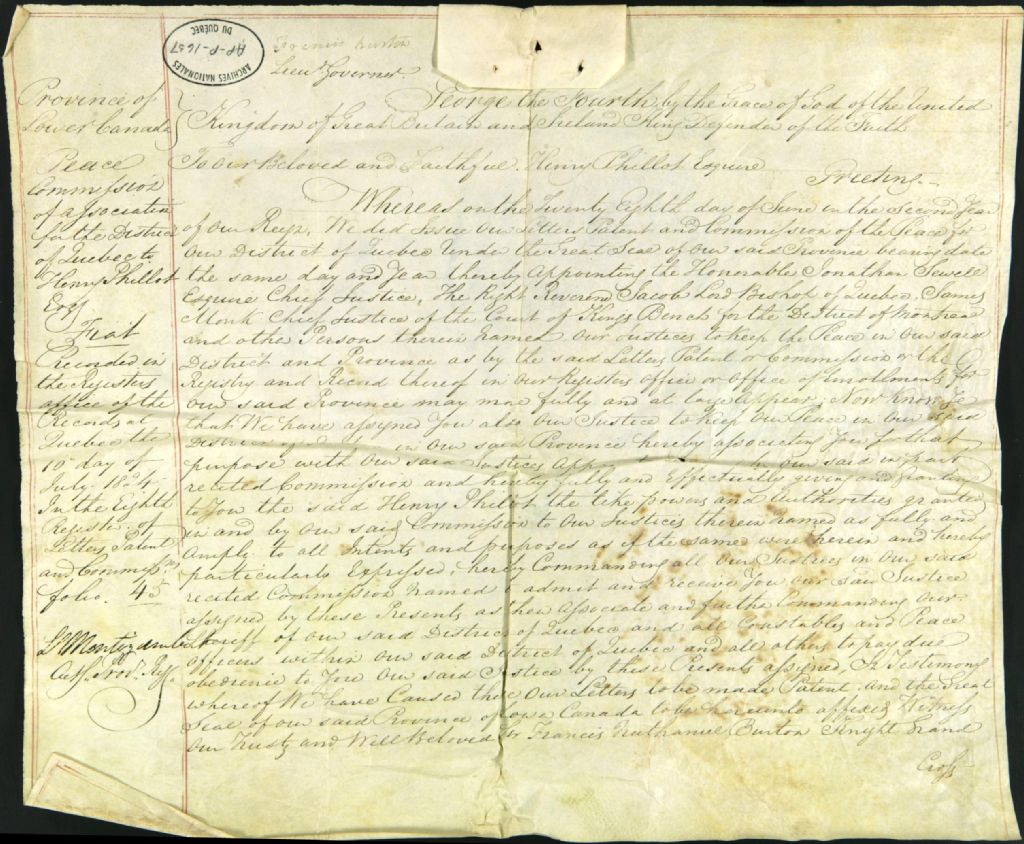 ARCHIVES NATIONALES
DU QUÉBEC
AP-P-1657
Francis Burton
Lieut Governor
Province of
Lower Canada
George the Fourth by the Grace of God of the United
Kingdom of Great Britain and Ireland King Defender of the Faith
To Our Beloved and Faithful Henry Phillot Esquire
Greeting
Peace
Commission
of association
for the District
of Quebec to
Henry Phillot
Esqr
Fiat
Recorded in
the Registers
office of the
Records at
Quebec the
10th day of
July 1824
In the Eighth
Register of
Letters Patent
and Commissns
folio 45
Ls Montizambert
Actg Provl Regr
Whereas on the Twenty Eighth day of June in the Second Year
of Our Reign, We did Issue Our Letters Patent and Commission of the Peace for
Our District of Quebec Under the Great Seal of Our said Province bearing date
the same day and Year thereby Appointing the Honorable Jonathan Sewell
Esquire Chief Justice, The Right Reverend Jacob Lord Bishop of Quebec, James
Monk Chief Justice of the Court of Kings Bench for the District of Montreal
and other Persons therein named Our Justices to keep the Peace in Our said
District and Province as by the said Letters Patent or Commission or the
Registry and Record thereof in Our Registers Office or Office of Enrollments for
Our said Province may more fully and at large appear, Now know Ye
that We have assigned You also Our Justice to keep Our Peace in Our said
District of in Our said Province hereby associating You for that
purpose with Our said Justices Our said in part
recited Commission and hereby fully and Effectually giving and Granting
to You the said Henry Phillot the like powers and Authorities granted
in and by Our said Commission to Our Justices therein named as fully and
Amply to all Intents and purposes as if the same were herein and hereby
particularly Expressed, hereby Commanding all Our Justices in Our said
recited Commission named to admit and receive You Our said Justice
assigned by these Presents as their Associate and further Commanding Our
Sheriff of Our said District of Quebec and all Constables and Peace
Officers within Our said District of Quebec and all others to pay due
obedience to You Our said Justice by these Presents assigned In Testimony
whereof We have Caused these Our Letters to be made Patent and the Great
Seal of Our said Province of Lower Canada to be hereunto affixed Witness
Our Trusty and Well Beloved Sir Francis Nathaniel Burton Knight Grand
Cross